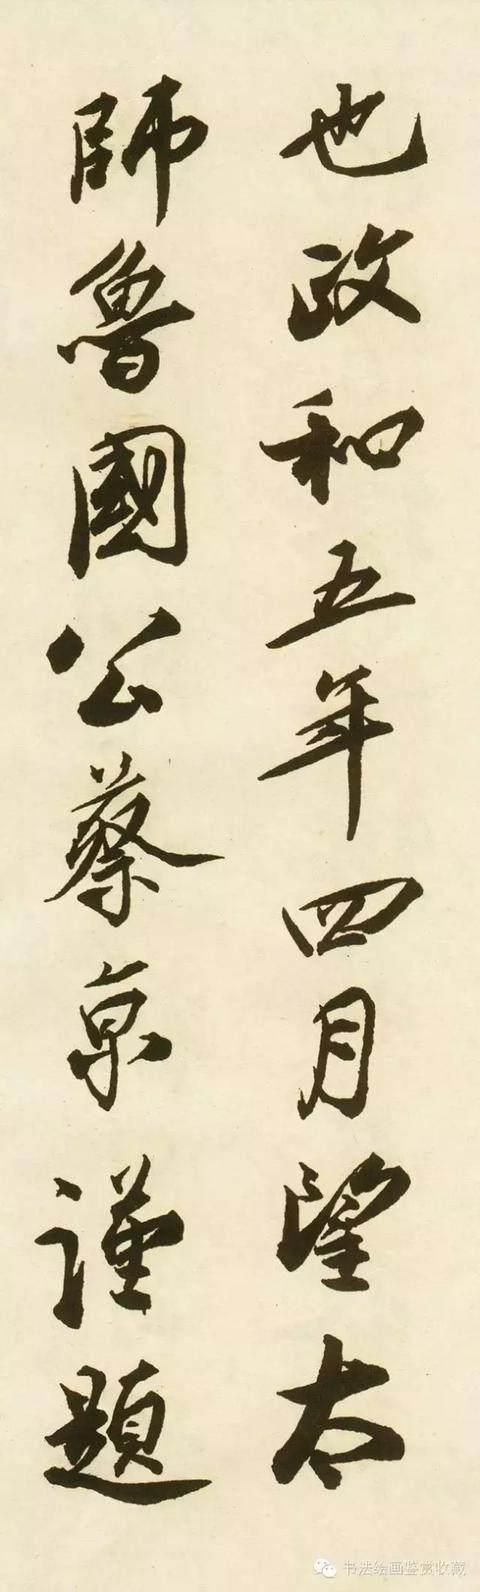 也政和五年四月望太
師魯國公蔡京謹題
书法绘画鉴赏收藏